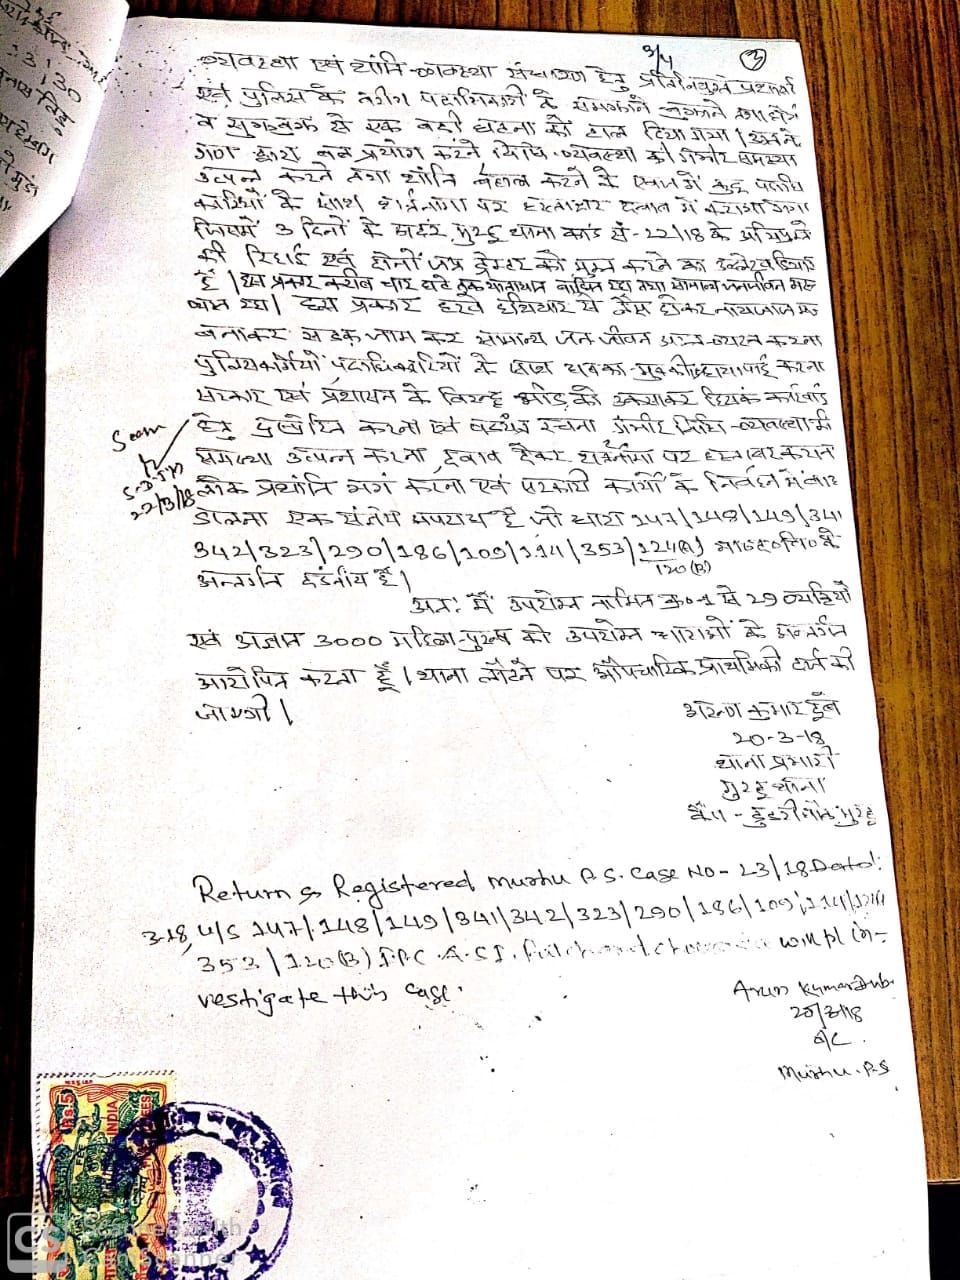 3/4 ③
व्यवस्था एवं शांति-व्यवस्था संधारण हेतु प्रतिनियुक्त
एवं पुलिस के वरीय पदाधिकारी के समझाने बुझाने
व सुझबुझ से एक बड़ी घटना को टाल दिया गया।
द्वारा बल प्रयोग करने विधि-व्यवस्था की गंभीर समस्या
उत्पन्न करने तथा शांति बहाल करने के एवज में कुछ पदाधि
कारियों के साथ शर्तनामा पर हस्ताक्षर दबाव में कराया गया
जिसमें 3 दिनों के अन्दर मुरहू थाना कांड सं-22/18 के
की रिहाई एवं दोनों जप्त ट्रैक्टर को मुक्त करने का उल्लेख किया
है। इस प्रकार करीब चार घंटे तक यातायात बाधित रहा तथा सामान्य जनजीवन अस्त
व्यस्त रहा। इस प्रकार हरवे हथियार से लैस होकर नाजायज मजमा
बनाकर सड़क जाम कर सामान्य जन जीवन अस्त-व्यस्त करना
पुलिसकर्मियों पदाधिकारियों के साथ धक्का-मुक्की हाथापाई करना
सरकार एवं प्रशासन के विरुद्ध भीड़ को उकसाकर हिंसक कार्रवाई
हेतु प्रेरित करना एवं षडयंत्र रचना गंभीर विधि-व्यवस्था की
समस्या उत्पन्न करना दबाव देकर शर्तनामा पर हस्ताक्षर कराना
लोक प्रशांति भंग करना एवं सरकारी कार्यों के निर्वहन में बाधा
डालना एक संज्ञेय अपराध है जो धारा 147/148/149/341
342/323/290/186/109/114/353/124(A) भा०द०वि० के
120(B)
अन्तर्गत दंडनीय है।
Seen
S.D.J.M
22/3/18
अतः मैं उपरोक्त नामित क्र०-1 से 29 व्यक्तियों
एवं अज्ञात 3000 महिला-पुरुष को उपरोक्त धाराओं के अन्तर्गत
आरोपित करता हूँ। थाना लौटने पर औपचारिक प्राथमिकी दर्ज की
जाएगी।
अरुण कुमार दुबे
20-3-18
थाना प्रभारी
मुरहू थाना
कैंप -
Return & Registered Murhu P.S. Case No- 23/18 Dated:
3.18, U/S 147/148/149/341/342/323/290/186/109/114/124(A)
353/120(B) I.P.C. A.S.I. will pl in-
vestigate this case.
Arun Kumar Dube
20/3/18
O/C.
Murhu. P.S
Rs.5
INDIA
CS
Scanned with
CamScanner